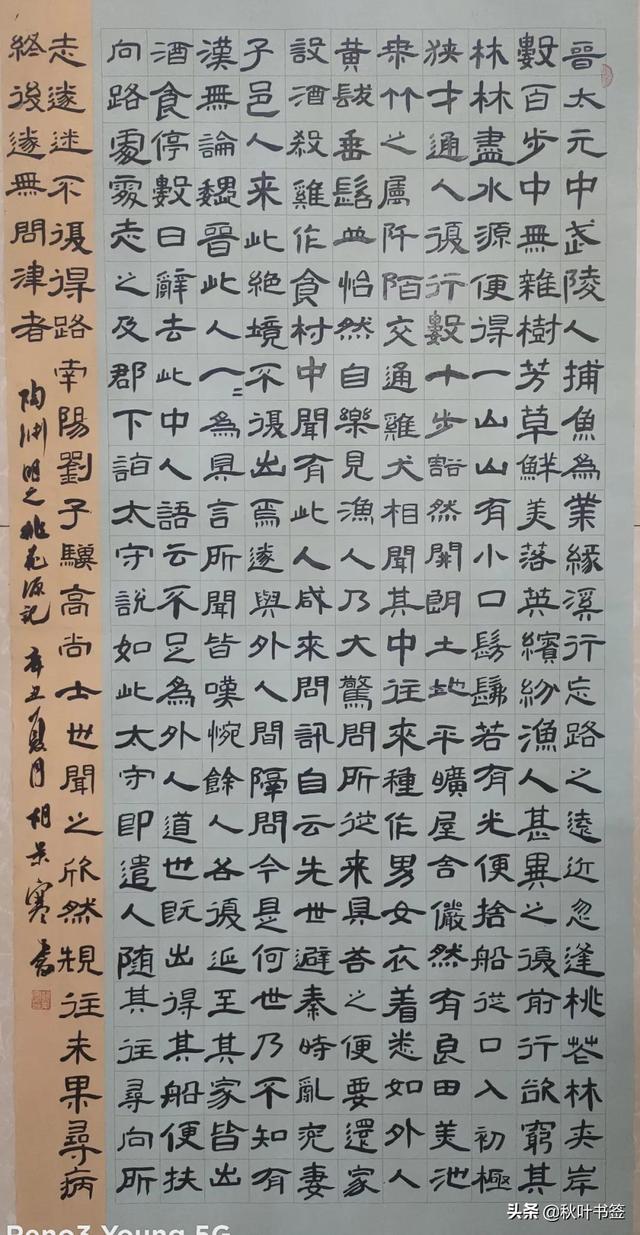 晉太元中武陵人捕魚為業緣溪行忘路之遠近忽逢桃花林夾岸
數百步中無雜樹芳草鮮美落英繽紛漁人甚異之復前行欲窮其
林林盡水源便得一山山有小口髣髴若有光便捨船從口入初極
狹才通人復行數十步豁然開朗土地平曠屋舍儼然有良田美池
桑竹之屬阡陌交通雞犬相聞其中往來種作男女衣着悉如外人
黃髮垂髫並怡然自樂見漁人乃大驚問所從来具答之便要還家
設酒殺雞作食村中聞有此人咸來問訊自云先世避秦時亂率妻
子邑人来此絕境不復出焉遂與外人間隔問今是何世乃不知有
漢無論魏晉此人一〻為具言所聞皆嘆惋餘人各復延至其家皆出
酒食停數日辭去此中人語云不足為外人道也既出得其船便扶
向路處處志之及郡下詣太守說如此太守即遣人随其往尋向所
志遂迷不復得路南陽劉子驥高尚士也聞之欣然規往未果尋病
終後遂無問津者
陶淵明之桃花源記 辛丑夏月 胡景寒書
Reno3 Young 5G
头条 @秋叶书签